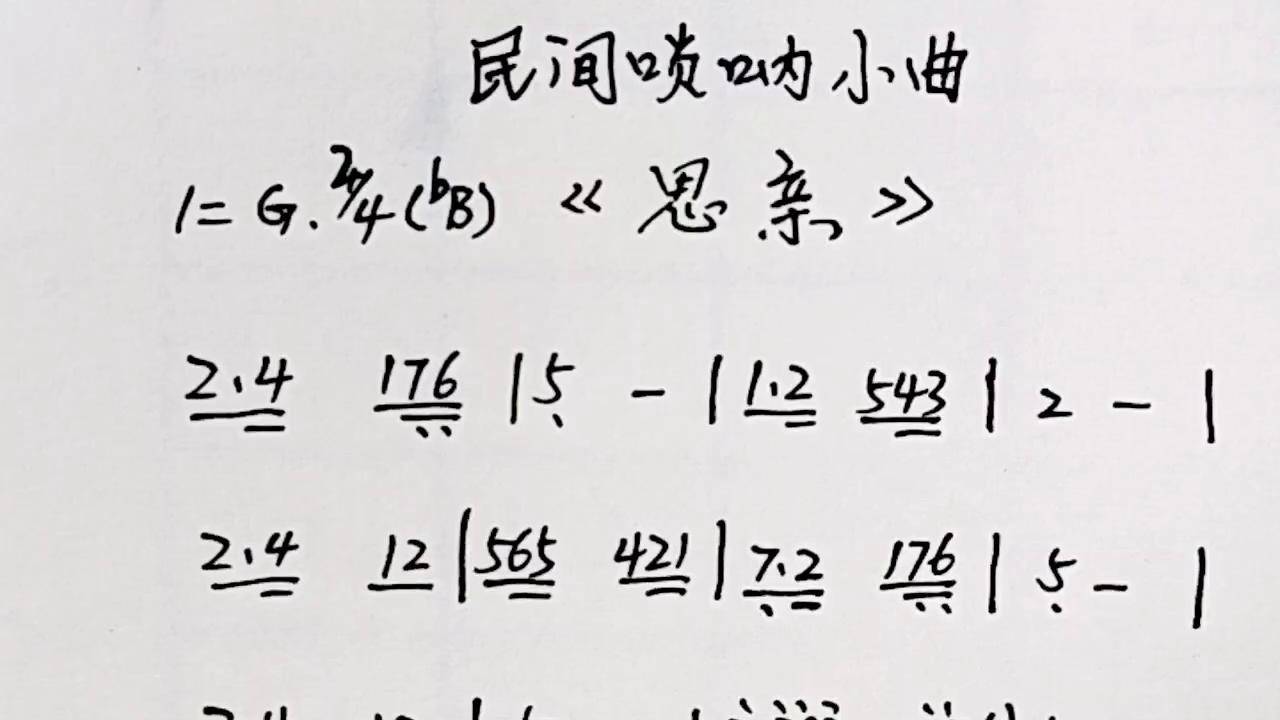 民间唢呐小曲
1=G.2/4(bB) 《思亲》
2.4 176 | 5 - | 1.2 543 | 2 - |
2.4 12 | 565 421 | 7.2 176 | 5 - |